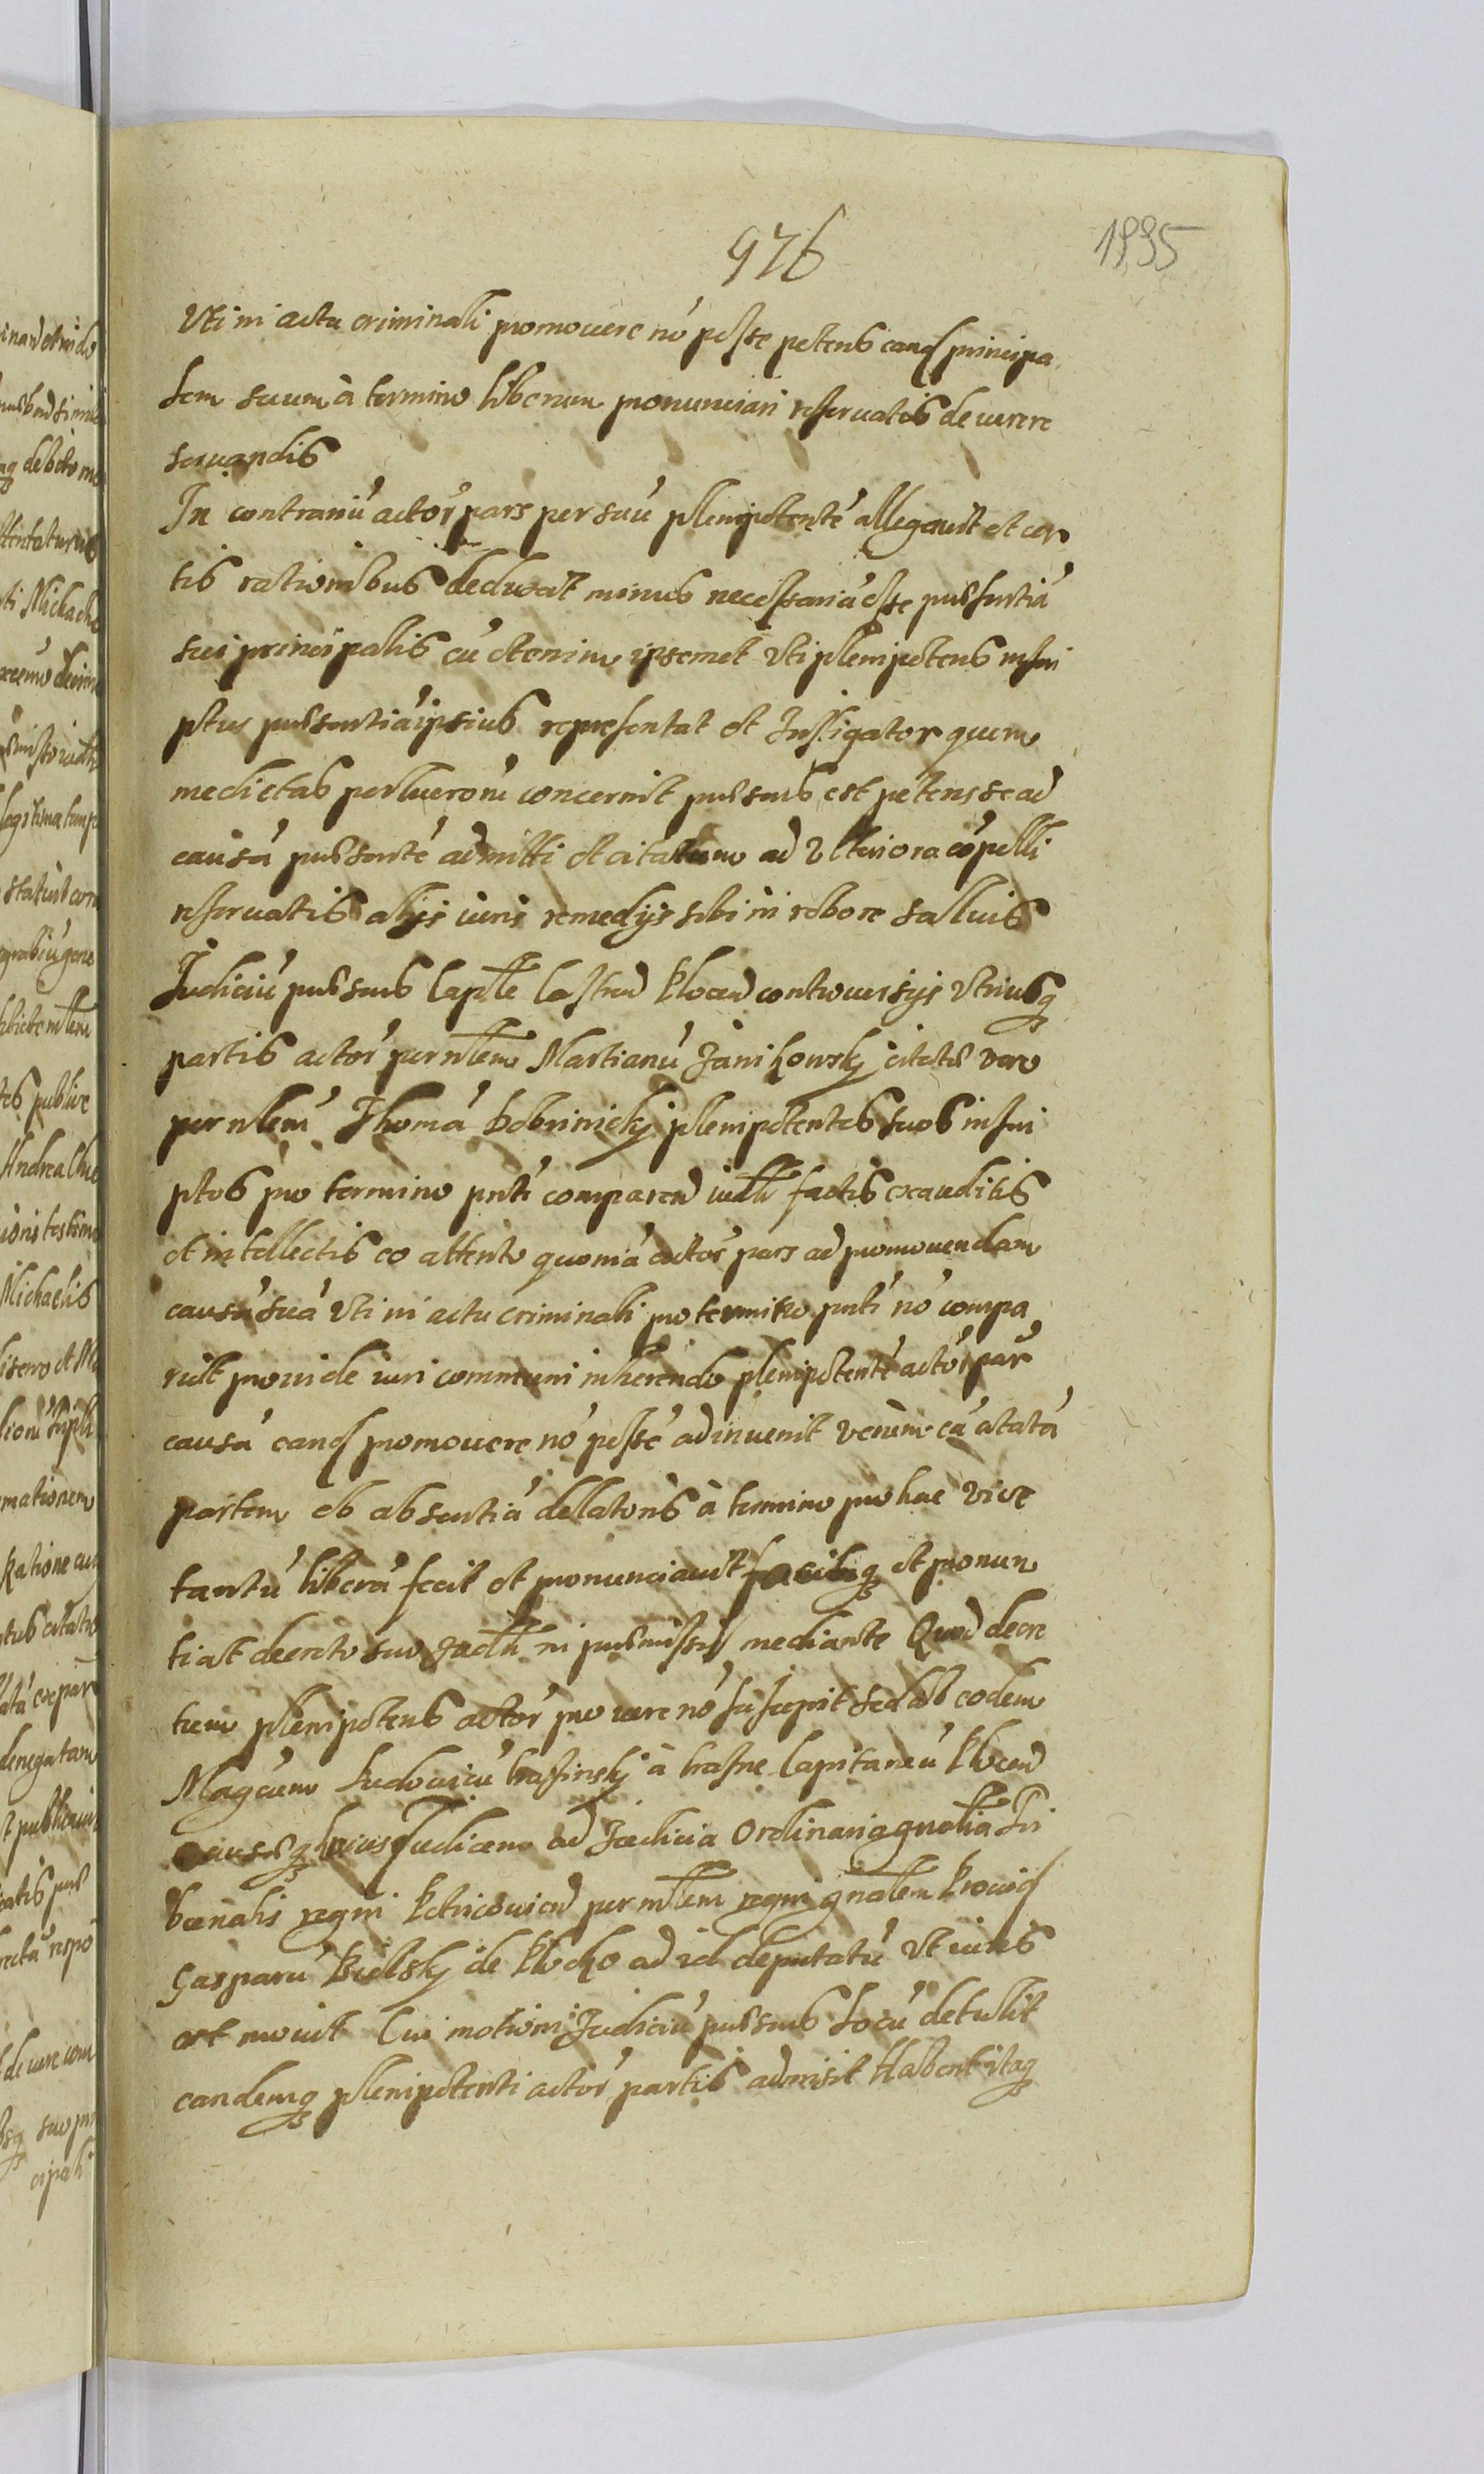 976
1995
Uti in actu criminali promouere nō posse petens eand principa
lem suum à termino liberum pronunciari reseruatis de iure re
seruandis
In contrariū actor pars per suū plenipotentē allegauit et cer
tis rationibus deduxit minus necessariā esse pnsentiā
sui principalis cū etenim ipsemet Uti plenipotens inscri
ptus pnsentiā ipsius representat et Instigator quem
medietas pertueronū concernit pnsens est petens se ad
causā pnsentē admitti et citatum ad Ulteriora cōpelli
reseruatis alijs iuris remedijs sibi in robore saluis
Judiciū pnsens Captle Castren Plocen controuersijs Utriusq
partis actor per nblem Martianū Janikowskj citatae vero
per nblem Thomā Dobrinickj plenipotentes suos inscri
ptos pro termino pnti comparen iudtr factis exauditis
et intellectis eo attento quoniā actor pars ad promouendam
causā suā Uti in actu criminali pro termino pnti nō compa
ruit prouide iuri communi inherendo plenipotentē actor par
causā eand promouere nō posse adinuenit verum cū citatā
partem ob absentiā dellatoris à termino pro hac vice
tantū liberā fecit et pronunciauit facitq et pronun
tiat decreto suo Judtr in pnmissis mediante Quod decre
tum plenipotens actor pro iure nō suscepit sed ab eodem
Magcum Ludouicū Krasinskj à Krasne Capitaneū Plocen
causaeq huius Judicem ad Judicia Ordinaria gnalia Tri
bunalis regni Petricouien per nblem regni gnalem Prouid
Gasparū Bielskj de Plocko ad id deputatū Ut iuris
est mouit Cui motioni Judiciū pnsens locū detulit
eandemq plenipotenti actor partis admisit Habent itaq